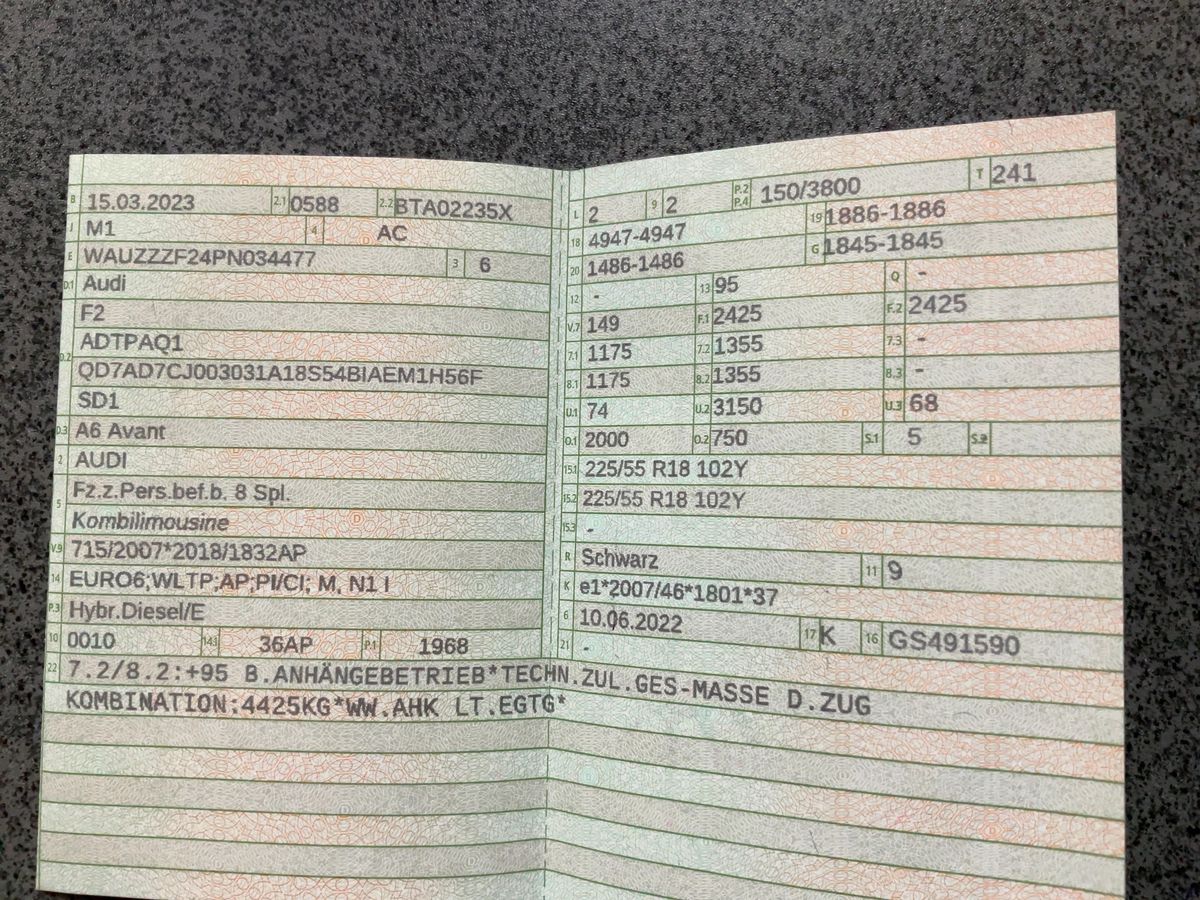 B 15.03.2023 2.1 0588 2.2 BTA02235X
J M1 4 AC
E WAUZZZF24PN034477 3 6
D.1 Audi
F2
D.2 ADTPAQ1
QD7AD7CJ003031A18S54BIAEM1H56F
SD1
D.3 A6 Avant
2 AUDI
5 Fz.z.Pers.bef.b. 8 Spl.
Kombilimousine
V.9 715/2007*2018/1832AP
14 EURO6;WLTP;AP;PI/CI; M, N1 I
P.3 Hybr.Diesel/E
10 0010 14.1 36AP P.1 1968
L 2 9 2 P.2 P.4 150/3800 T 241
18 4947-4947 19 1886-1886
20 1486-1486 G 1845-1845
12 - 13 95 Q -
V.7 149 F.1 2425 F.2 2425
7.1 1175 7.2 1355 7.3 -
8.1 1175 8.2 1355 8.3 -
U.1 74 U.2 3150 U.3 68
O.1 2000 O.2 750 S.1 5 S.2
15.1 225/55 R18 102Y
15.2 225/55 R18 102Y
15.3 -
R Schwarz 11 9
K e1*2007/46*1801*37
6 10.06.2022 17 K 16 GS491590
21 -
22 7.2/8.2:+95 B.ANHÄNGEBETRIEB*TECHN.ZUL.GES-MASSE D.ZUG
KOMBINATION:4425KG*WW.AHK LT.EGTG*